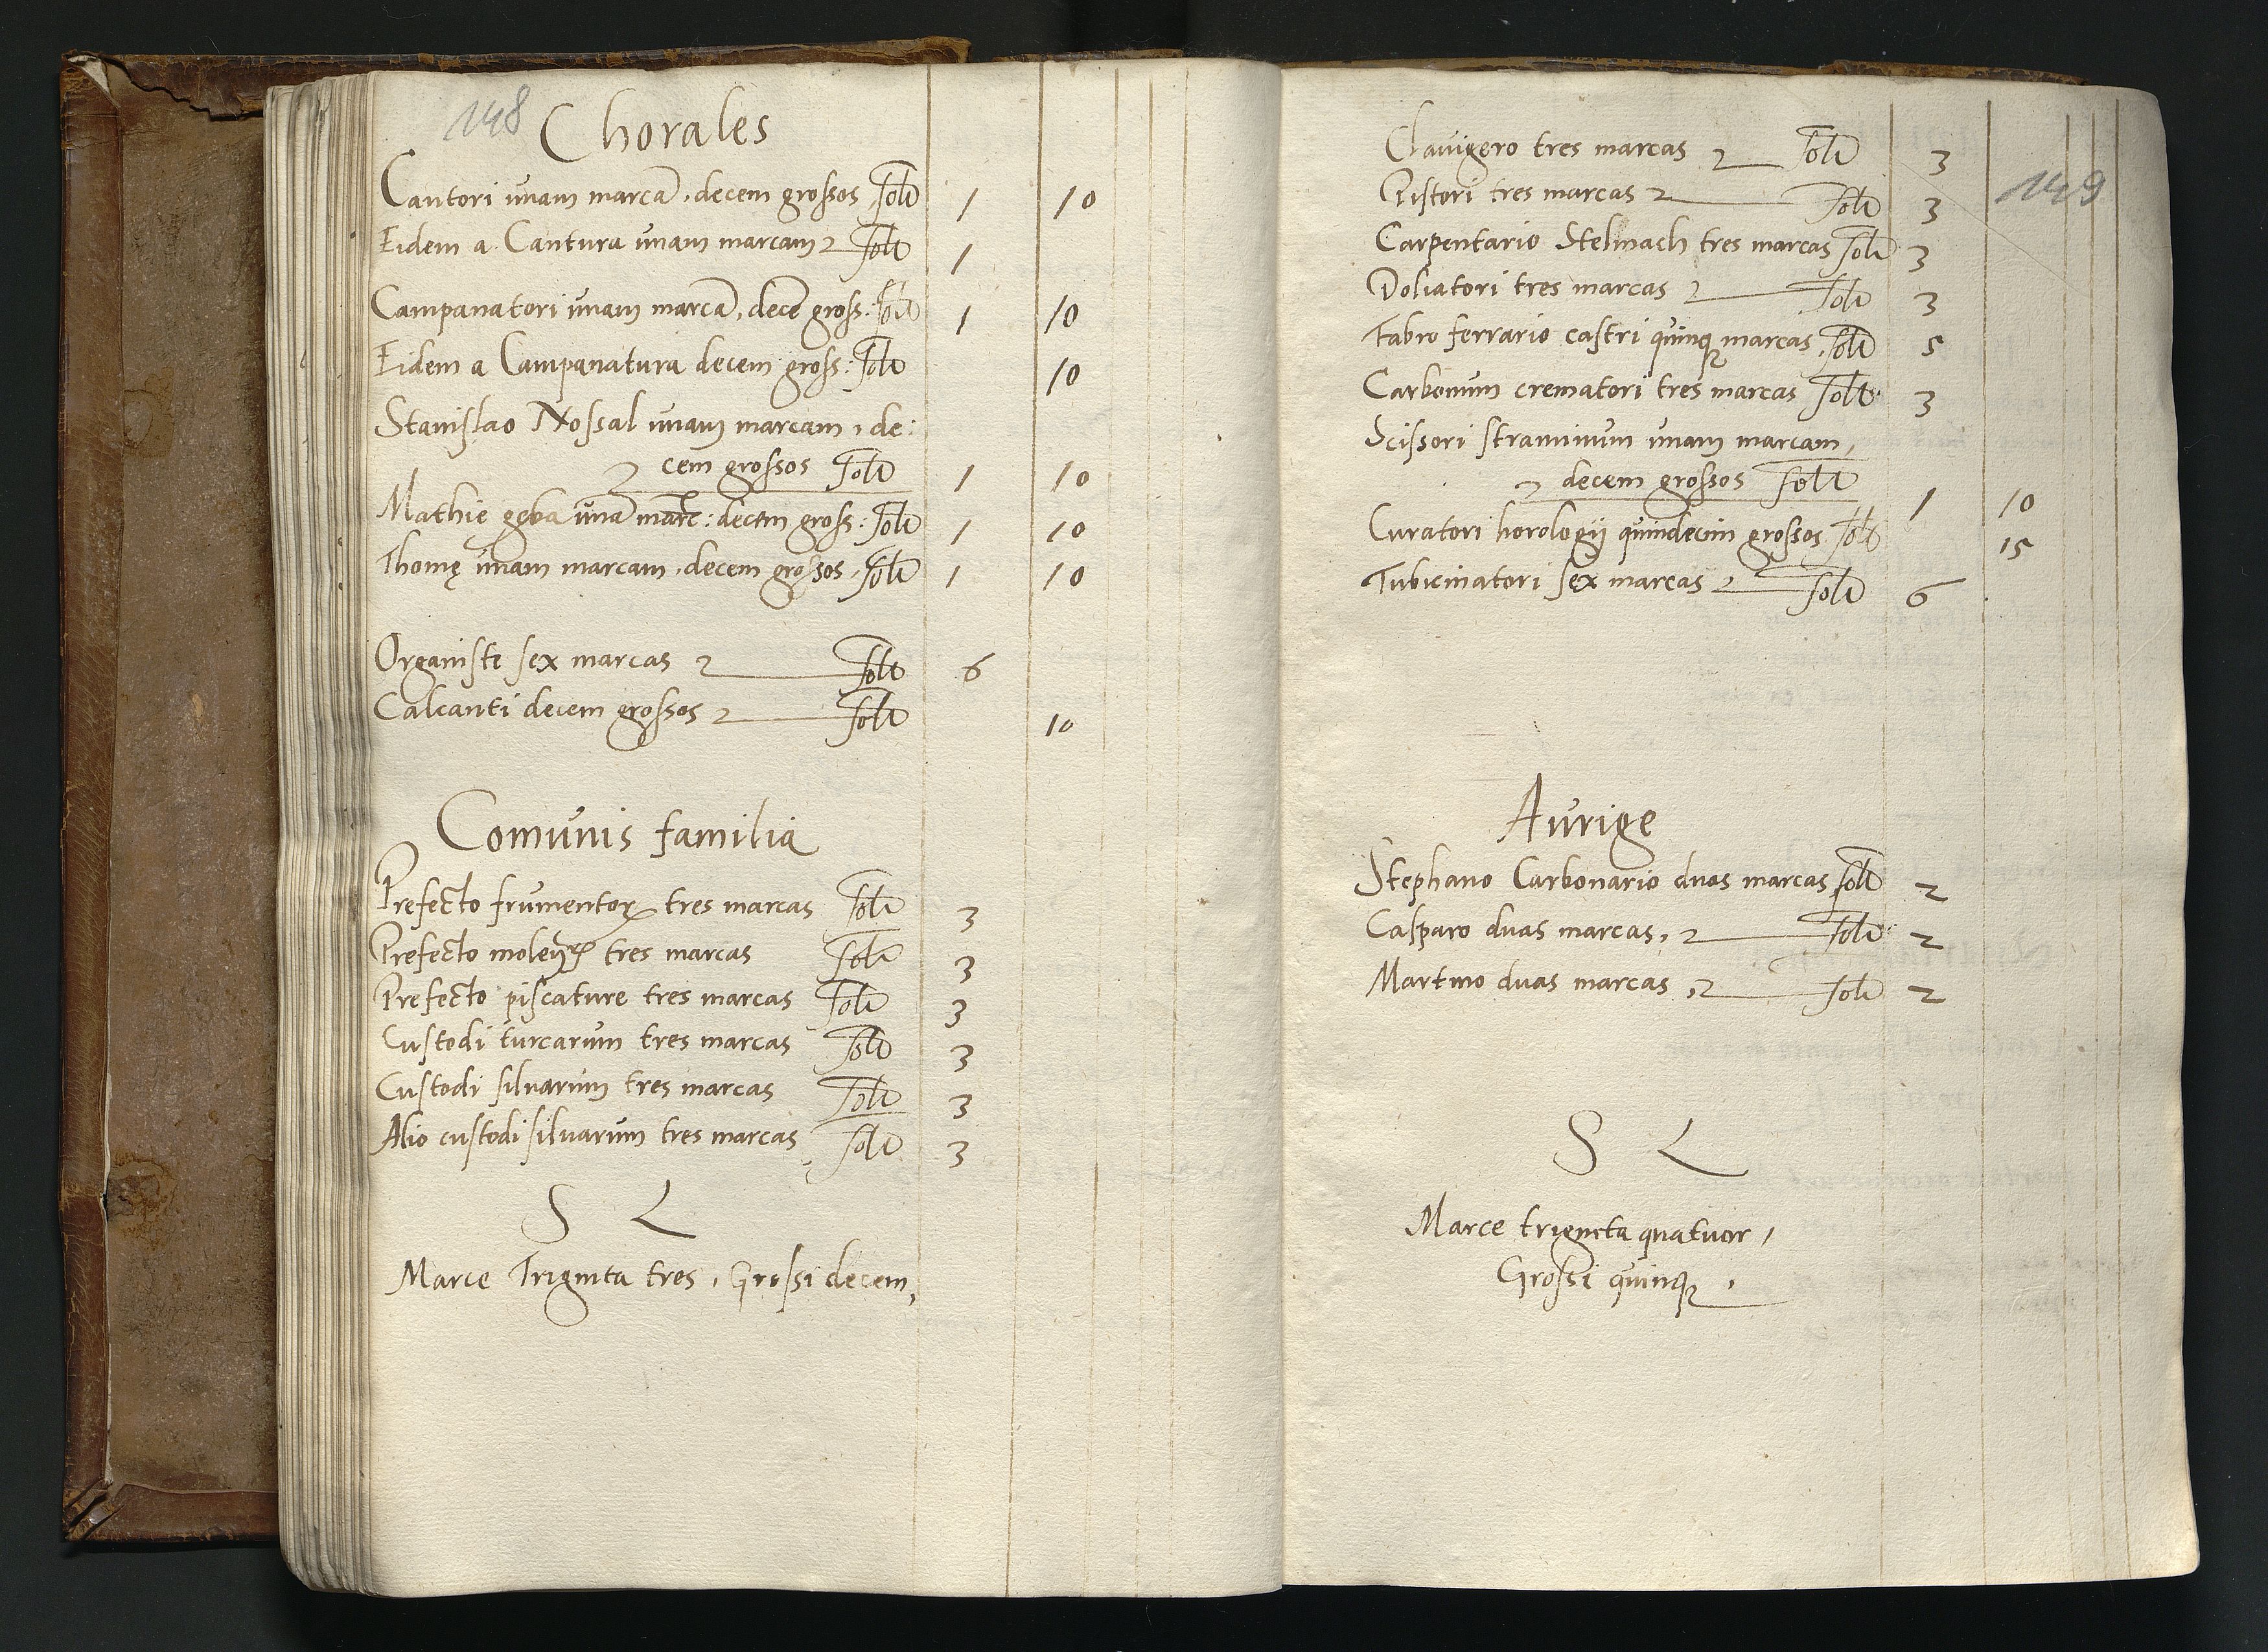 148
Chorales
Cantori unam marcā. decem grossos Solt 1 10
Eidem a Cantura unam marcam Solt 1
Campanatori unam marcā, decē gross: Solt 1 10
Eidem a Campanatura decem gross: Solt 10
Stanislao Nossal unam marcam, de:
cem grossos Solt 1 10
Mathię gęba unā marc: decem gross: Solt 1 10
Thomę unam marcam. decem grossos. Solt 1 10
Organiste sex marcas Solt 6
Calcanti decem grossos Solt 10
Comunis familia
Prefecto frumentoꝝ tres marcas Solt 3
Prefecto tres marcas Solt 3
Prefecto piscature tres marcas Solt 3
Custodi turcarum tres marcas Solt 3
Custodi silvarum tres marcas Solt 3
Alio custodi silvarum tres marcas Solt 3
S L
Marce Triginta tres, Grossi decem,
149
Clavigero tres marcas Solt 3
Pistori tres marcas Solt 3
Carpentario Stelmach tres marcas Solt 3
Doliatori tres marcas Solt 3
Fabro ferrario castri quinqꝫ marcas, Solt 5
Carbonum crematori tres marcas Solt 3
Scissori straminum unam marcam,
decem grossos Solt 1 10
Curatori horologij quindecim grossos Solt 15
Tubicinatori sex marcas Solt 6
Aurige
Stephano Carbonario duas marcas Solt 2
Casparo duas marcas, Solt 2
Martino duas marcas, Solt 2
S L
Marce triginta quatuor,
Grossi quinqꝫ.